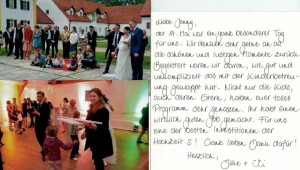 Liebe Jenny,
der 17. Mai war ein ganz besonderer Tag
für uns. Wir denken sehr gerne an all
die schönen und lustigen Momente zurück.
Begeistert waren wir davon, wie gut und
unkompliziert das mit der Kinderbetreu-
ung geklappt hat. Nicht nur die Kids,
auch deren Eltern, haben euer tolles
Programm sehr genossen. Ihr habt einen
wirklich guten Job gemacht. Für uns
eine der besten Investitionen der
Hochzeit! Ganz lieben Dank dafür!
Herzlich,